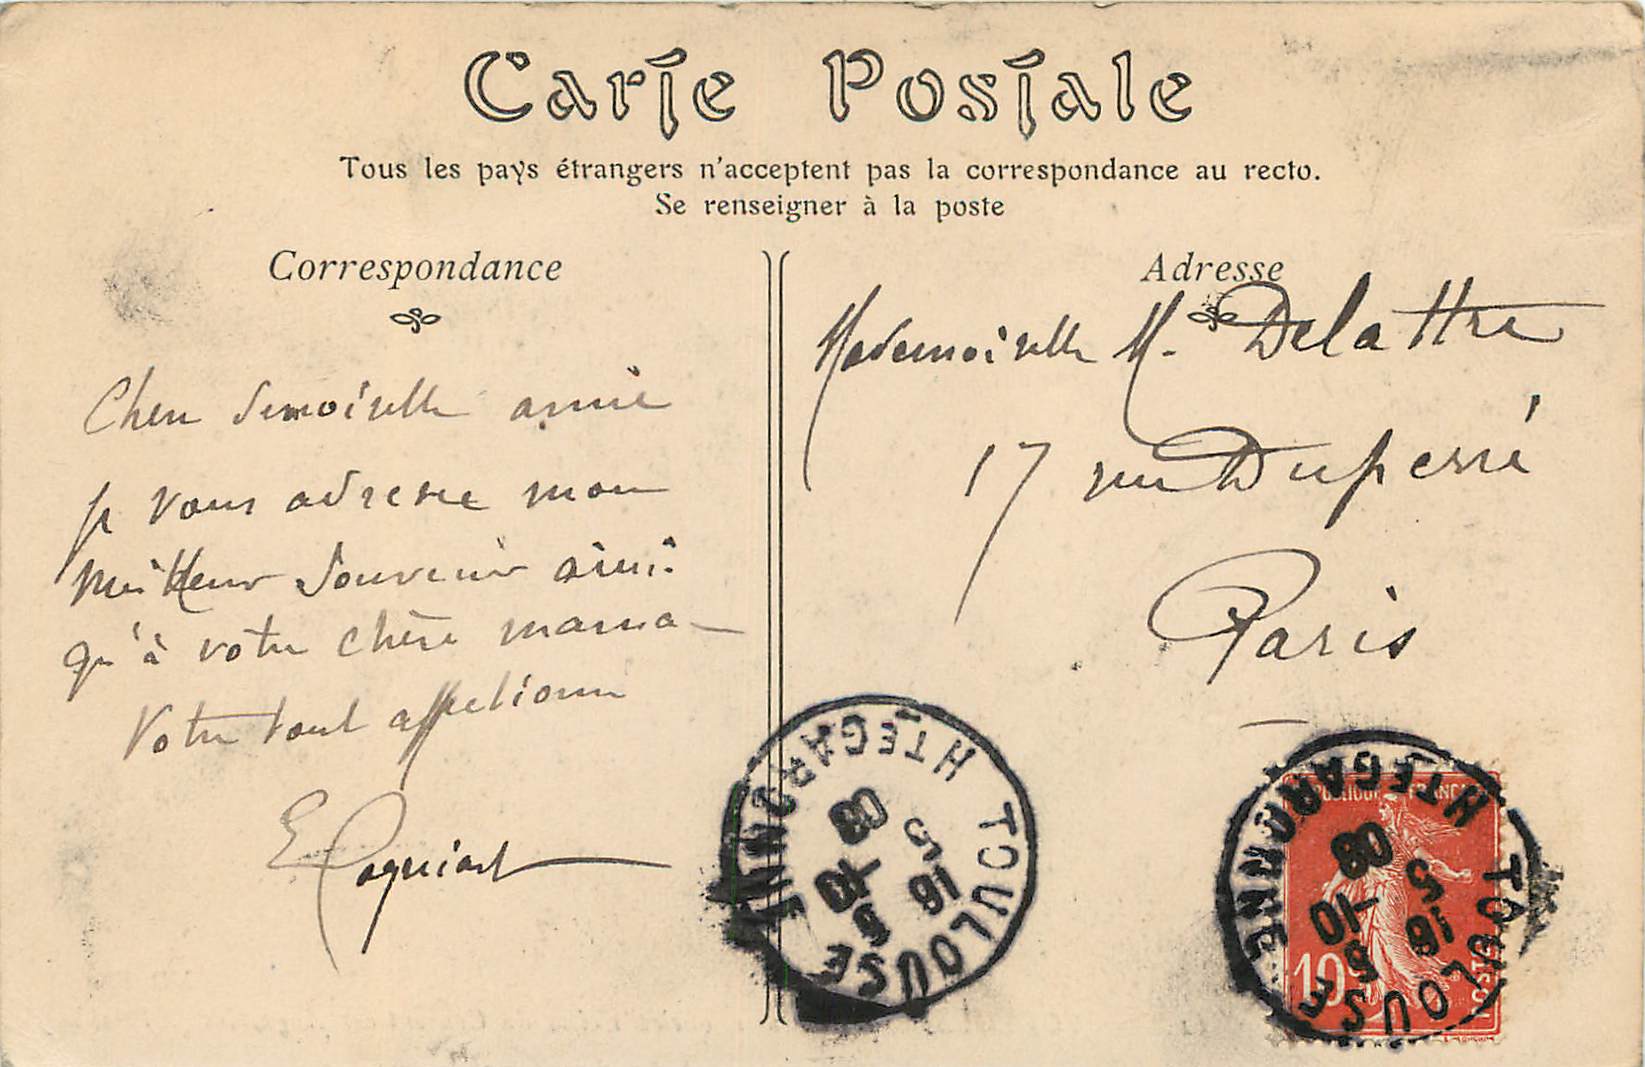 Carte Postale
Tous les pays étrangers n'acceptent pas la correspondance au recto.
Se renseigner à la poste
Correspondance
Chère demoiselle amie
je vous adresse mon
meilleur souvenir ainsi
qu'à votre chère maman
Votre tout affectionné
E
Adresse
Mademoiselle M. Delattre
17 rue Duperré
Paris
TOULOUSE
HTE GARONNE
16 5
5 -10
08
TOULOUSE
HTE GARONNE
16 5
5 -10
08
REPUBLIQUE FRANCAISE
10
POSTES